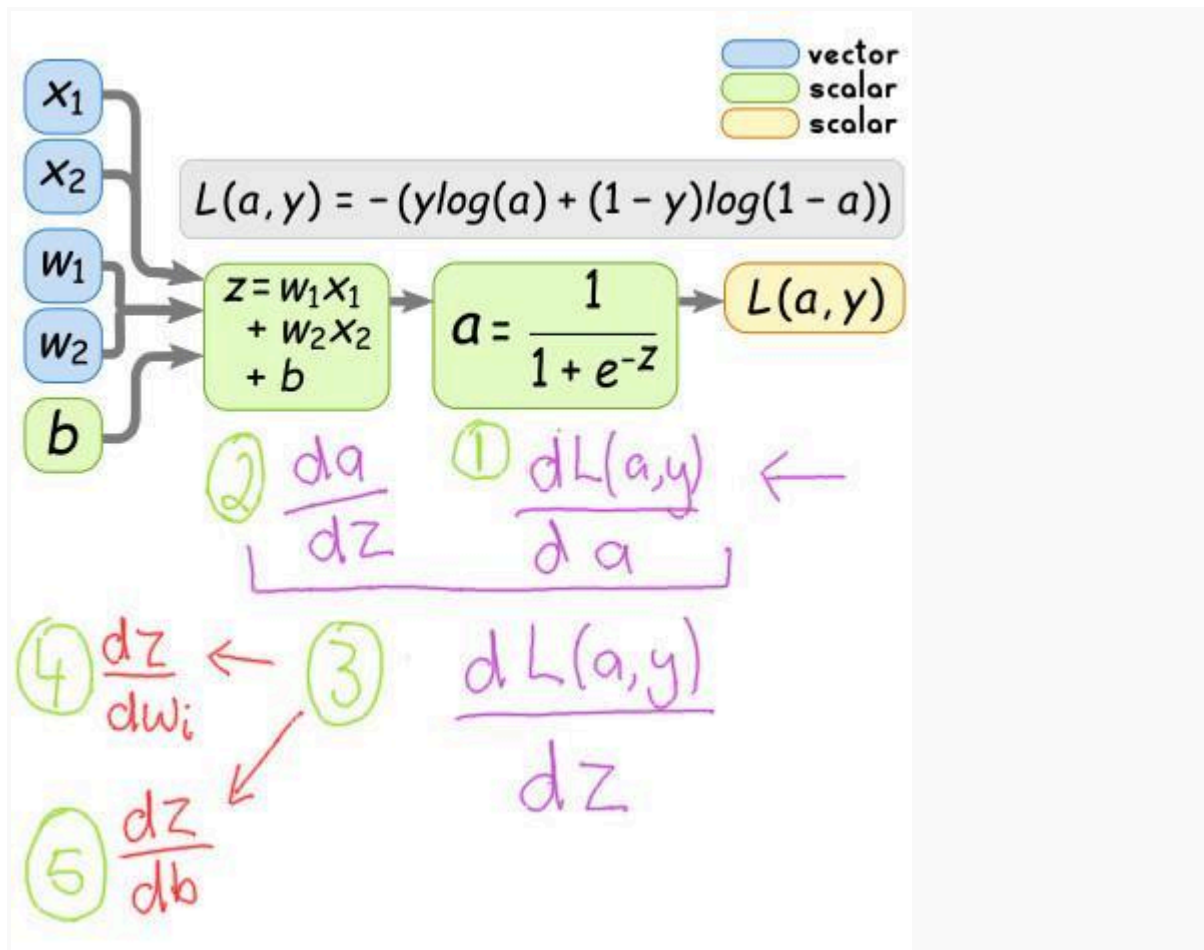 vector
scalar
scalar
x₁
x₂
w₁
w₂
b
L(a, y) = - (ylog(a) + (1 - y)log(1 - a))
z = w₁x₁
+ w₂x₂
+ b
a = 1 / (1 + e⁻ᶻ)
L(a, y)
② da/dz
① dL(a,y)/da ←
④ dz/dwᵢ ← ③ dL(a,y)/dz
⑤ dz/db